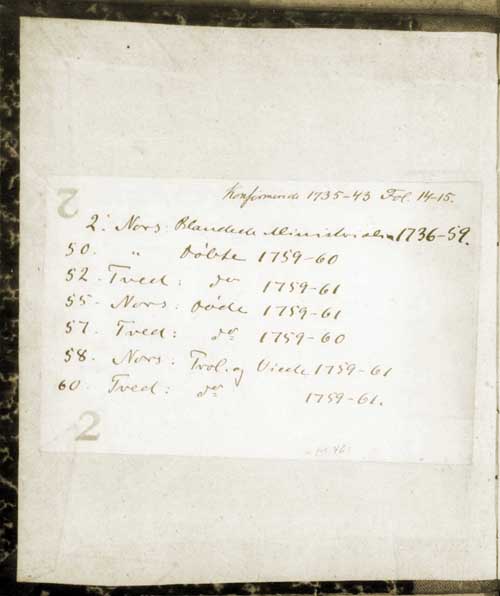 Konfirmerede 1735-43 Fol. 14-15.
2
2. Nors. Blandede Ministerialia 1736-59.
50. " Döbte 1759-60
52. Tved: do 1759-61
55. Nors. Döde 1759-61
57. Tved: do 1759-60
58. Nors. Trol. og Viede 1759-61
60. Tved: do 1759-61.
2